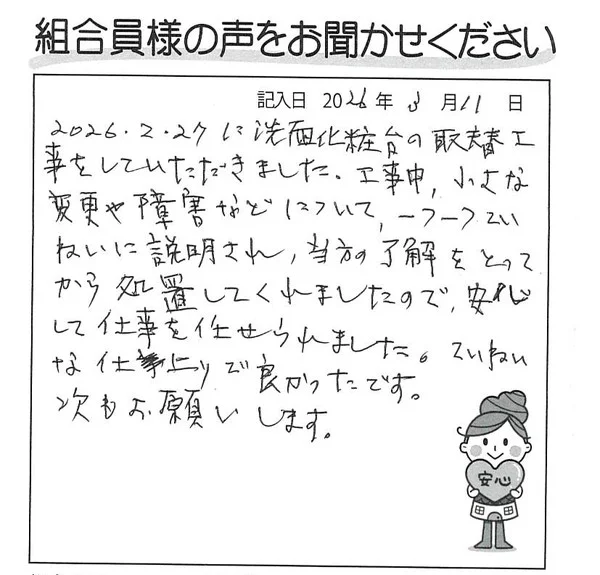 組合員様の声をお聞かせください
記入日 2026年 3 月11 日
2026.2.27に洗面化粧台の取替工
事をしていただきました。工事中,小さな
変更や障害などについて,一つ一つてい
ねいに説明され,当方の了解をとって
から処置してくれましたので,安心
して仕事を任せられました。ていねい
な仕事ぶりで良かったです。
次もお願いします。
安心